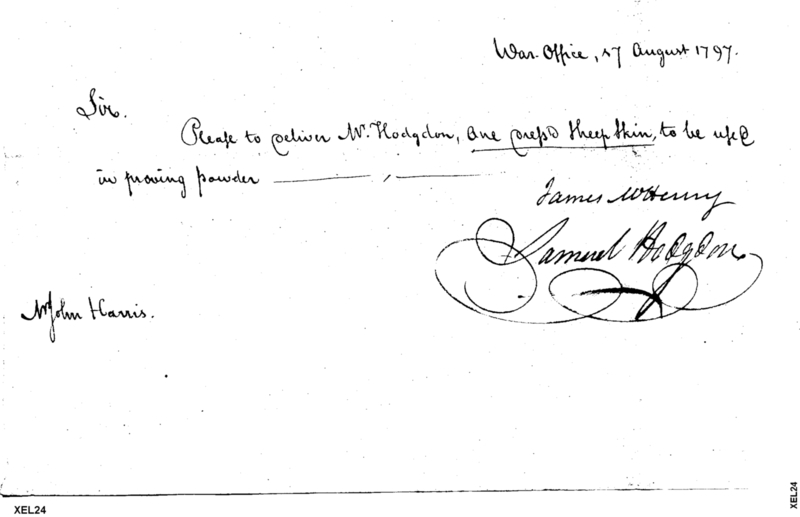 War Office, 17 August 1797.
Sir.
Please to deliver Mr. Hodgdon, one dress'd Sheep Skin, to be used
in proving powder
James McHenry
Samuel Hodgdon
Mr John Harris.
XEL24
XEL24